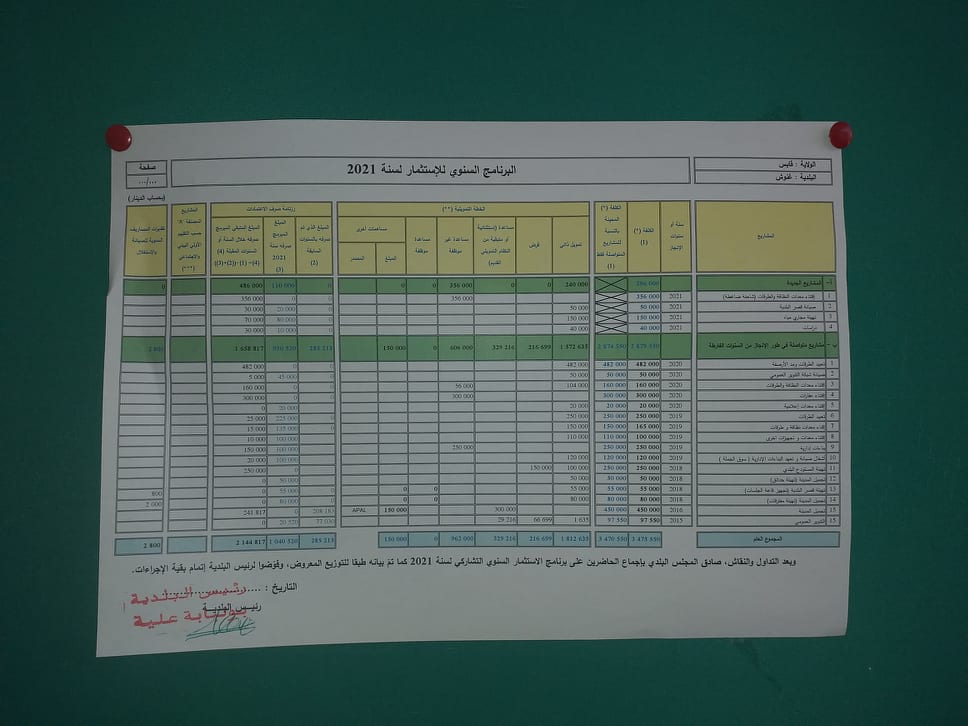 الولاية : قابس
البلدية : غنوش
البرنامج السنوي للإستثمار لسنة 2021
صفحة
.../...
(بحساب الدينار)
المشاريع
سنة أو سنوات الإنجاز
الكلفة (*) (1)
الكلفة (*) المحينة بالنسبة للمشاريع المتواصلة فقط (1)
الخطة التمويلية (**)
تمويل ذاتي
قرض
مساعدة غير موظفة
مساعدة موظفة
مساهمات أخرى
المبلغ
المصدر
رزنامة صرف الاعتمادات
المبلغ الذي تم صرفه بالسنوات السابقة (2)
المبلغ المبرمج صرفه سنة 2021 (3)
المبلغ المتبقي المبرمج صرفه خلال السنة أو السنوات المقبلة (4)
(4)= (1)-((2)+(3))
المشاريع المصنفة "A" حسب التقييم الأولي البيئي والاجتماعي (***)
تقديرات المصاريف السنوية للصيانة والاستغلال
أ- المشاريع الجديدة 240 000 0 0 356 000 0 0 110 000 486 000 0
1 إقتناء معدات النظافة والطرقات (شاحنة ضاغطة) 2021 356 000 356 000 0 0 356 000
2 صيانة قصر البلدية 2021 50 000 50 000 0 20 000 30 000
3 تهيئة مجاري مياه 2021 150 000 150 000 0 80 000 70 000
4 دراسات 2021 40 000 40 000 0 10 000 30 000
ب - مشاريع متواصلة في طور الإنجاز من السنوات الفارطة 1 572 635 216 699 329 216 606 000 0 150 000 285 213 930 520 1 658 817
1 تعبيد الطرقات ومد الأرصفة 2020 482 000 482 000 482 000 0 0 482 000
2 صيانة شبكة التنوير العمومي 2020 50 000 50 000 50 000 0 45 000 5 000
3 إقتناء معدات النظافة والطرقات 2020 160 000 160 000 104 000 56 000 0 0 160 000
4 إقتناء عقارات 2020 300 000 300 000 300 000 0 300 000
5 إقتناء معدات إعلامية 2020 20 000 20 000 20 000 20 000 0
6 تعبيد الطرقات 2019 250 000 250 000 250 000 0 225 000 25 000
7 إقتناء معدات نظافة و طرقات 2019 165 000 150 000 150 000 0 135 000 15 000
8 إقتناء معدات و تجهيزات أخرى 2019 100 000 110 000 110 000 100 000 10 000
9 بناءات إدارية 2019 250 000 250 000 250 000 100 000 150 000
10 أشغال صيانة و تعهد البناءات الإدارية ( سوق الجملة ) 2019 120 000 120 000 120 000 100 000 20 000
11 تهيئة المستودع البلدي 2018 250 000 250 000 100 000 150 000 0 250 000
12 تجميل المدينة (تهيئة حدائق) 2018 50 000 50 000 50 000 50 000 0
13 تهيئة قصر البلدية (تجهيز قاعة الجلسات) 2018 55 000 55 000 55 000 0 0 55 000 0 800
14 تجميل المدينة (تهيئة مفترقات) 2018 80 000 80 000 80 000 0 0 80 000 0 2 000
15 تجميل المدينة 2016 450 000 450 000 300 000 150 000 APAL 208 183 0 241 817
15 التنوير العمومي 2015 97 550 97 550 1 635 66 699 29 216 77 030 20 520 0
المجموع العام 3 470 550 1 812 635 216 699 329 216 962 000 0 150 000 285 213 1 040 520 2 144 817 2 800
وبعد التداول والنقاش، صادق المجلس البلدي بإجماع الحاضرين على برنامج الاستثمار السنوي التشاركي لسنة 2021 كما تمّ بيانه طبقا للتوزيع المعروض، وفوّضوا لرئيس البلدية إتمام بقية الإجراءات.
التاريخ : ....................
رئيس البلدية
رئيس البلدية
بولبابة علية